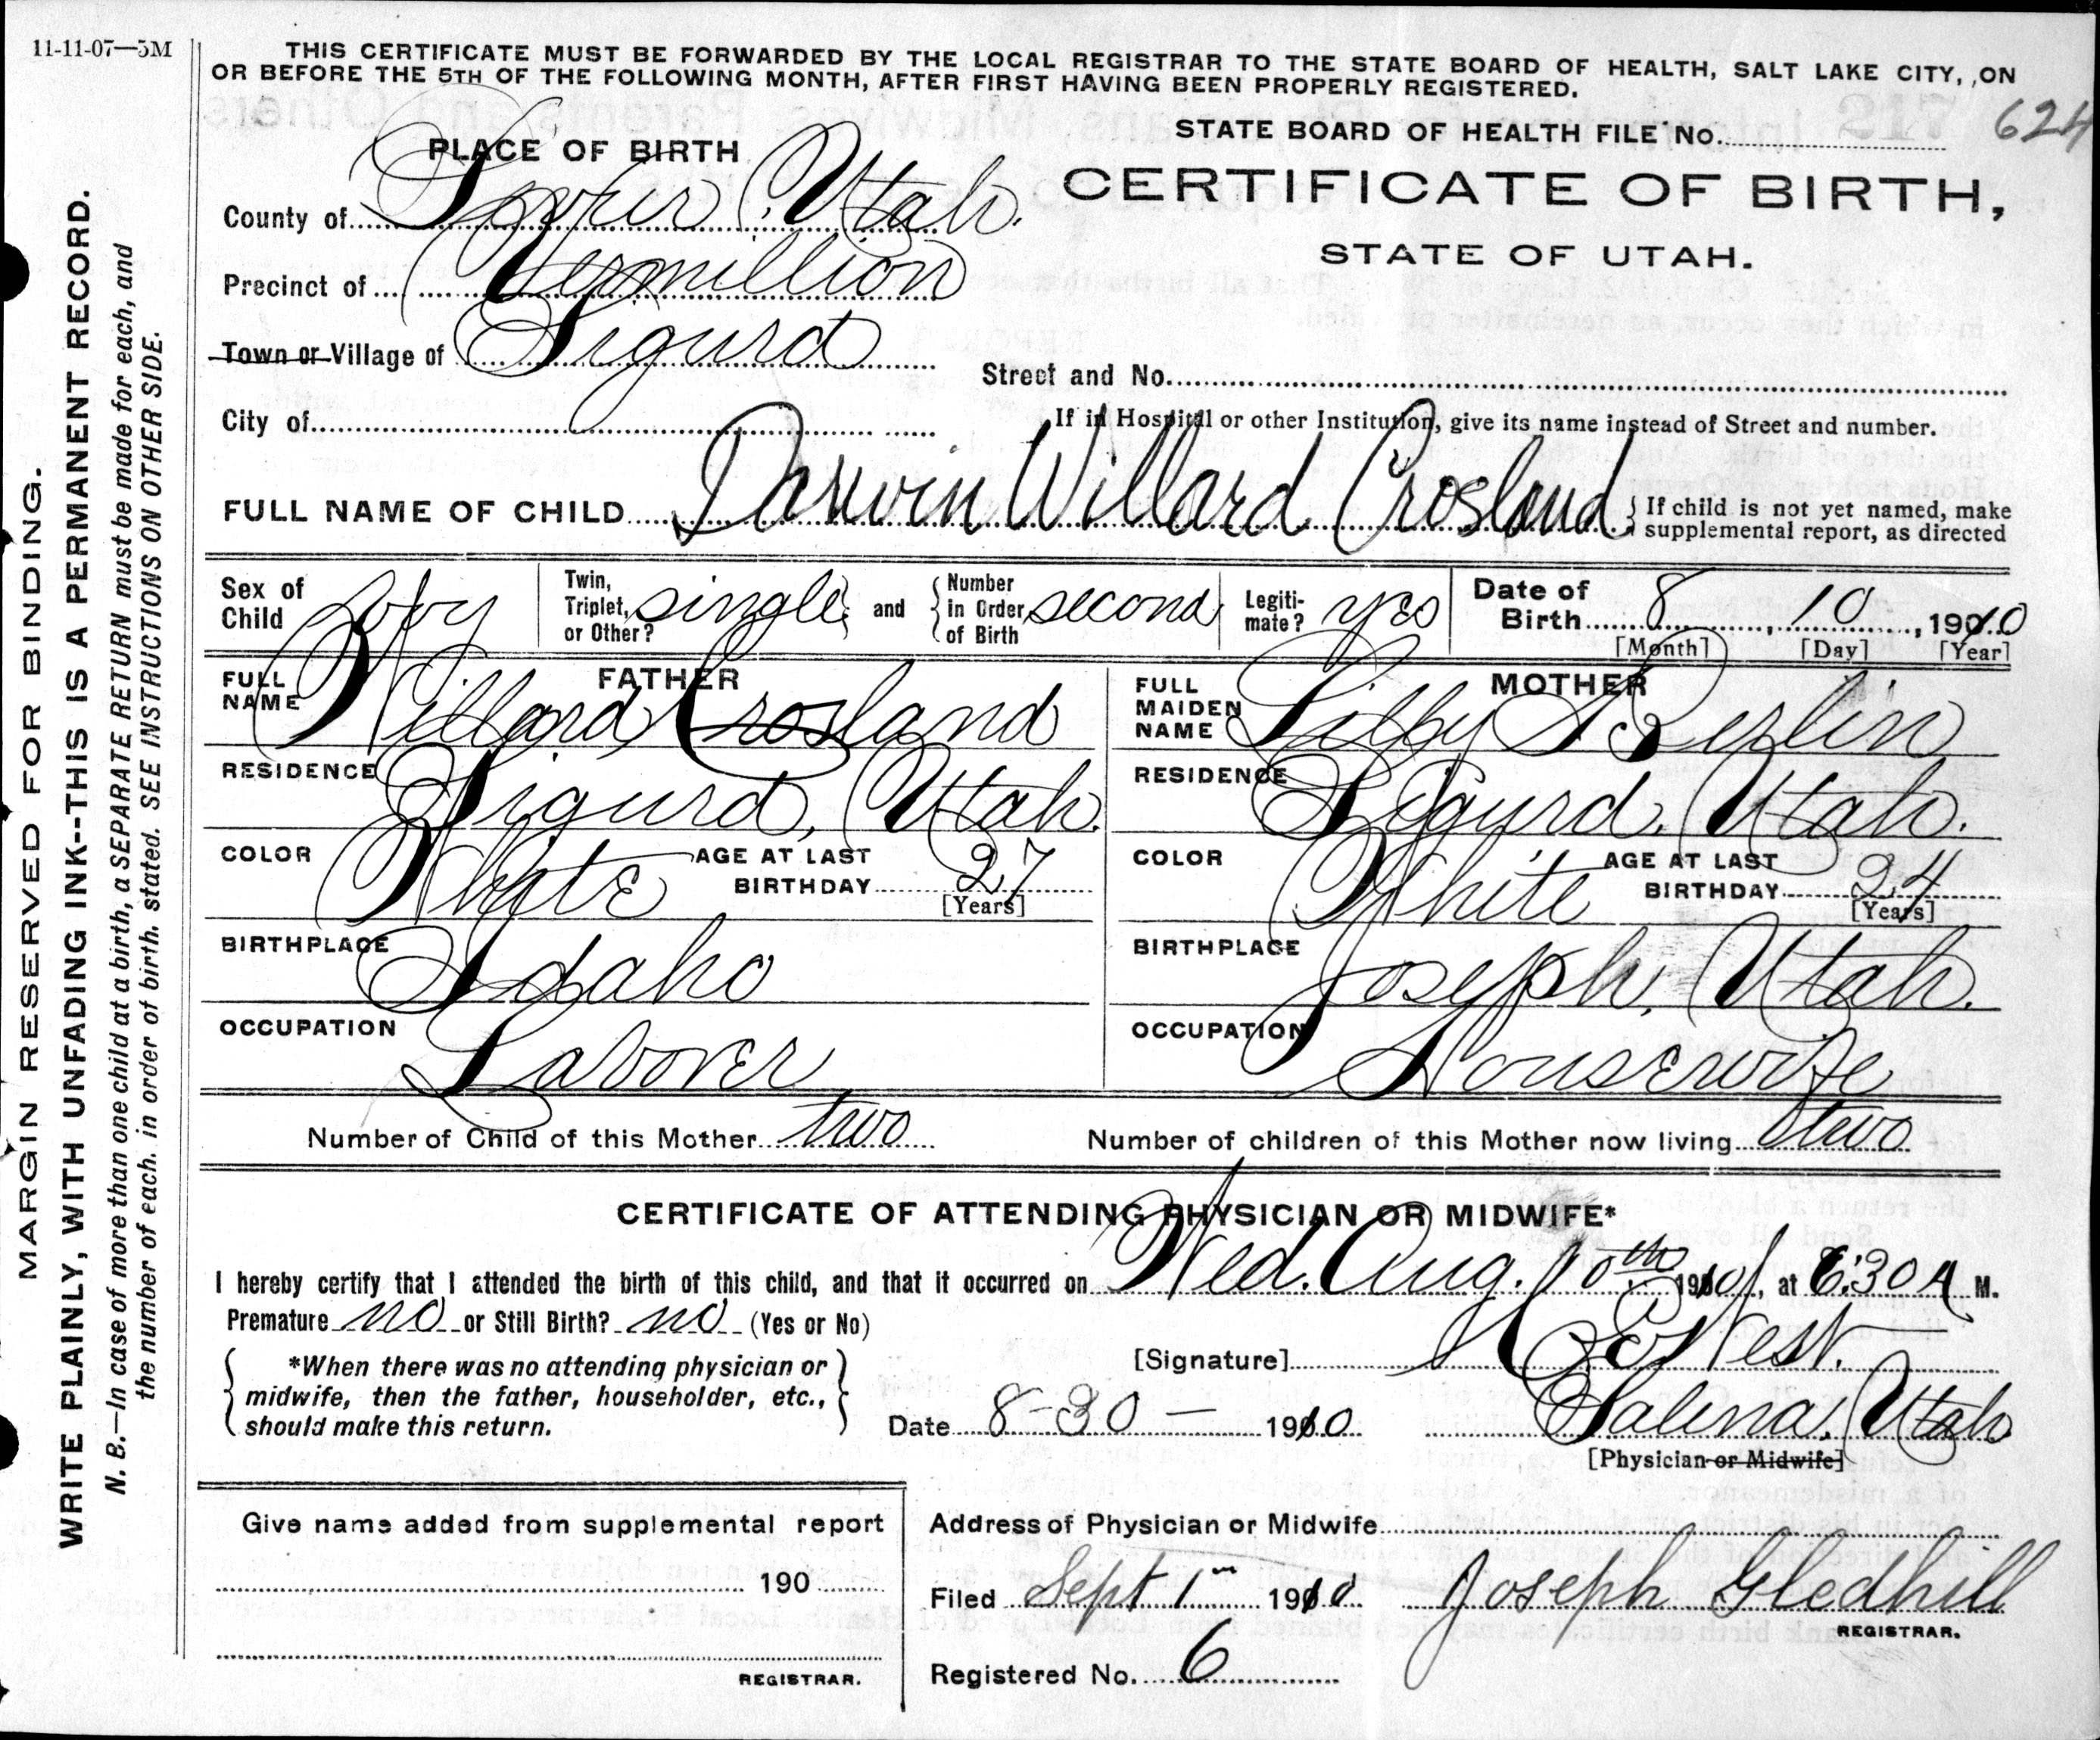 11-11-07—5M
THIS CERTIFICATE MUST BE FORWARDED BY THE LOCAL REGISTRAR TO THE STATE BOARD OF HEALTH, SALT LAKE CITY, ON
OR BEFORE THE 5TH OF THE FOLLOWING MONTH, AFTER FIRST HAVING BEEN PROPERLY REGISTERED.
STATE BOARD OF HEALTH FILE No. 624
PLACE OF BIRTH
CERTIFICATE OF BIRTH,
STATE OF UTAH.
County of Sevier, Utah.
Precinct of Vermillion
Town or Village of Sigurd
Street and No.
City of
If in Hospital or other Institution, give its name instead of Street and number.
FULL NAME OF CHILD Darwin Willard Crosland
If child is not yet named, make
supplemental report, as directed
Sex of Child boy
Twin, Triplet, or Other? single and Number in Order of Birth second
Legitimate? yes
Date of Birth 8, 10, 1910
[Month] [Day] [Year]
FATHER
FULL NAME Willard Crosland
RESIDENCE Sigurd, Utah.
COLOR White AGE AT LAST BIRTHDAY 27
[Years]
BIRTHPLACE Idaho
OCCUPATION Laborer
MOTHER
FULL MAIDEN NAME Lilly Berlin
RESIDENCE Sigurd, Utah.
COLOR White AGE AT LAST BIRTHDAY 24
[Years]
BIRTHPLACE Joseph, Utah.
OCCUPATION Housewife
Number of Child of this Mother two
Number of children of this Mother now living two
CERTIFICATE OF ATTENDING PHYSICIAN OR MIDWIFE*
I hereby certify that I attended the birth of this child, and that it occurred on Wed. Aug. 10th 1910, at 6:30 A M.
Premature no or Still Birth? no (Yes or No)
*When there was no attending physician or
midwife, then the father, householder, etc.,
should make this return.
[Signature] West.
Date 8-30- 1910
Salina, Utah
[Physician or Midwife]
Give name added from supplemental report
190
REGISTRAR.
Address of Physician or Midwife
Filed Sept 1 1910 Joseph Gledhill
REGISTRAR.
Registered No. 6
MARGIN RESERVED FOR BINDING.
WRITE PLAINLY, WITH UNFADING INK--THIS IS A PERMANENT RECORD.
N. B.—In case of more than one child at a birth, a SEPARATE RETURN must be made for each, and
the number of each, in order of birth, stated. SEE INSTRUCTIONS ON OTHER SIDE.